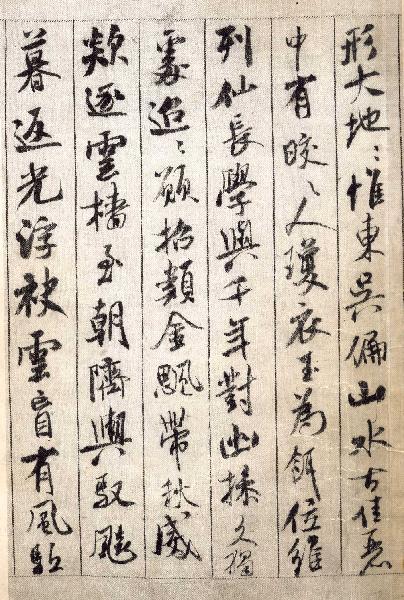 形大地々惟東吳偏山水古佳麗
中有皎々人瓊衣玉為餌位維
列仙長學與千年對幽操久獨
處迢々願招類金颸帶秋威
欻逐雲檣至朝隮輿馭飆
暮返光浮袂雲盲有風駈